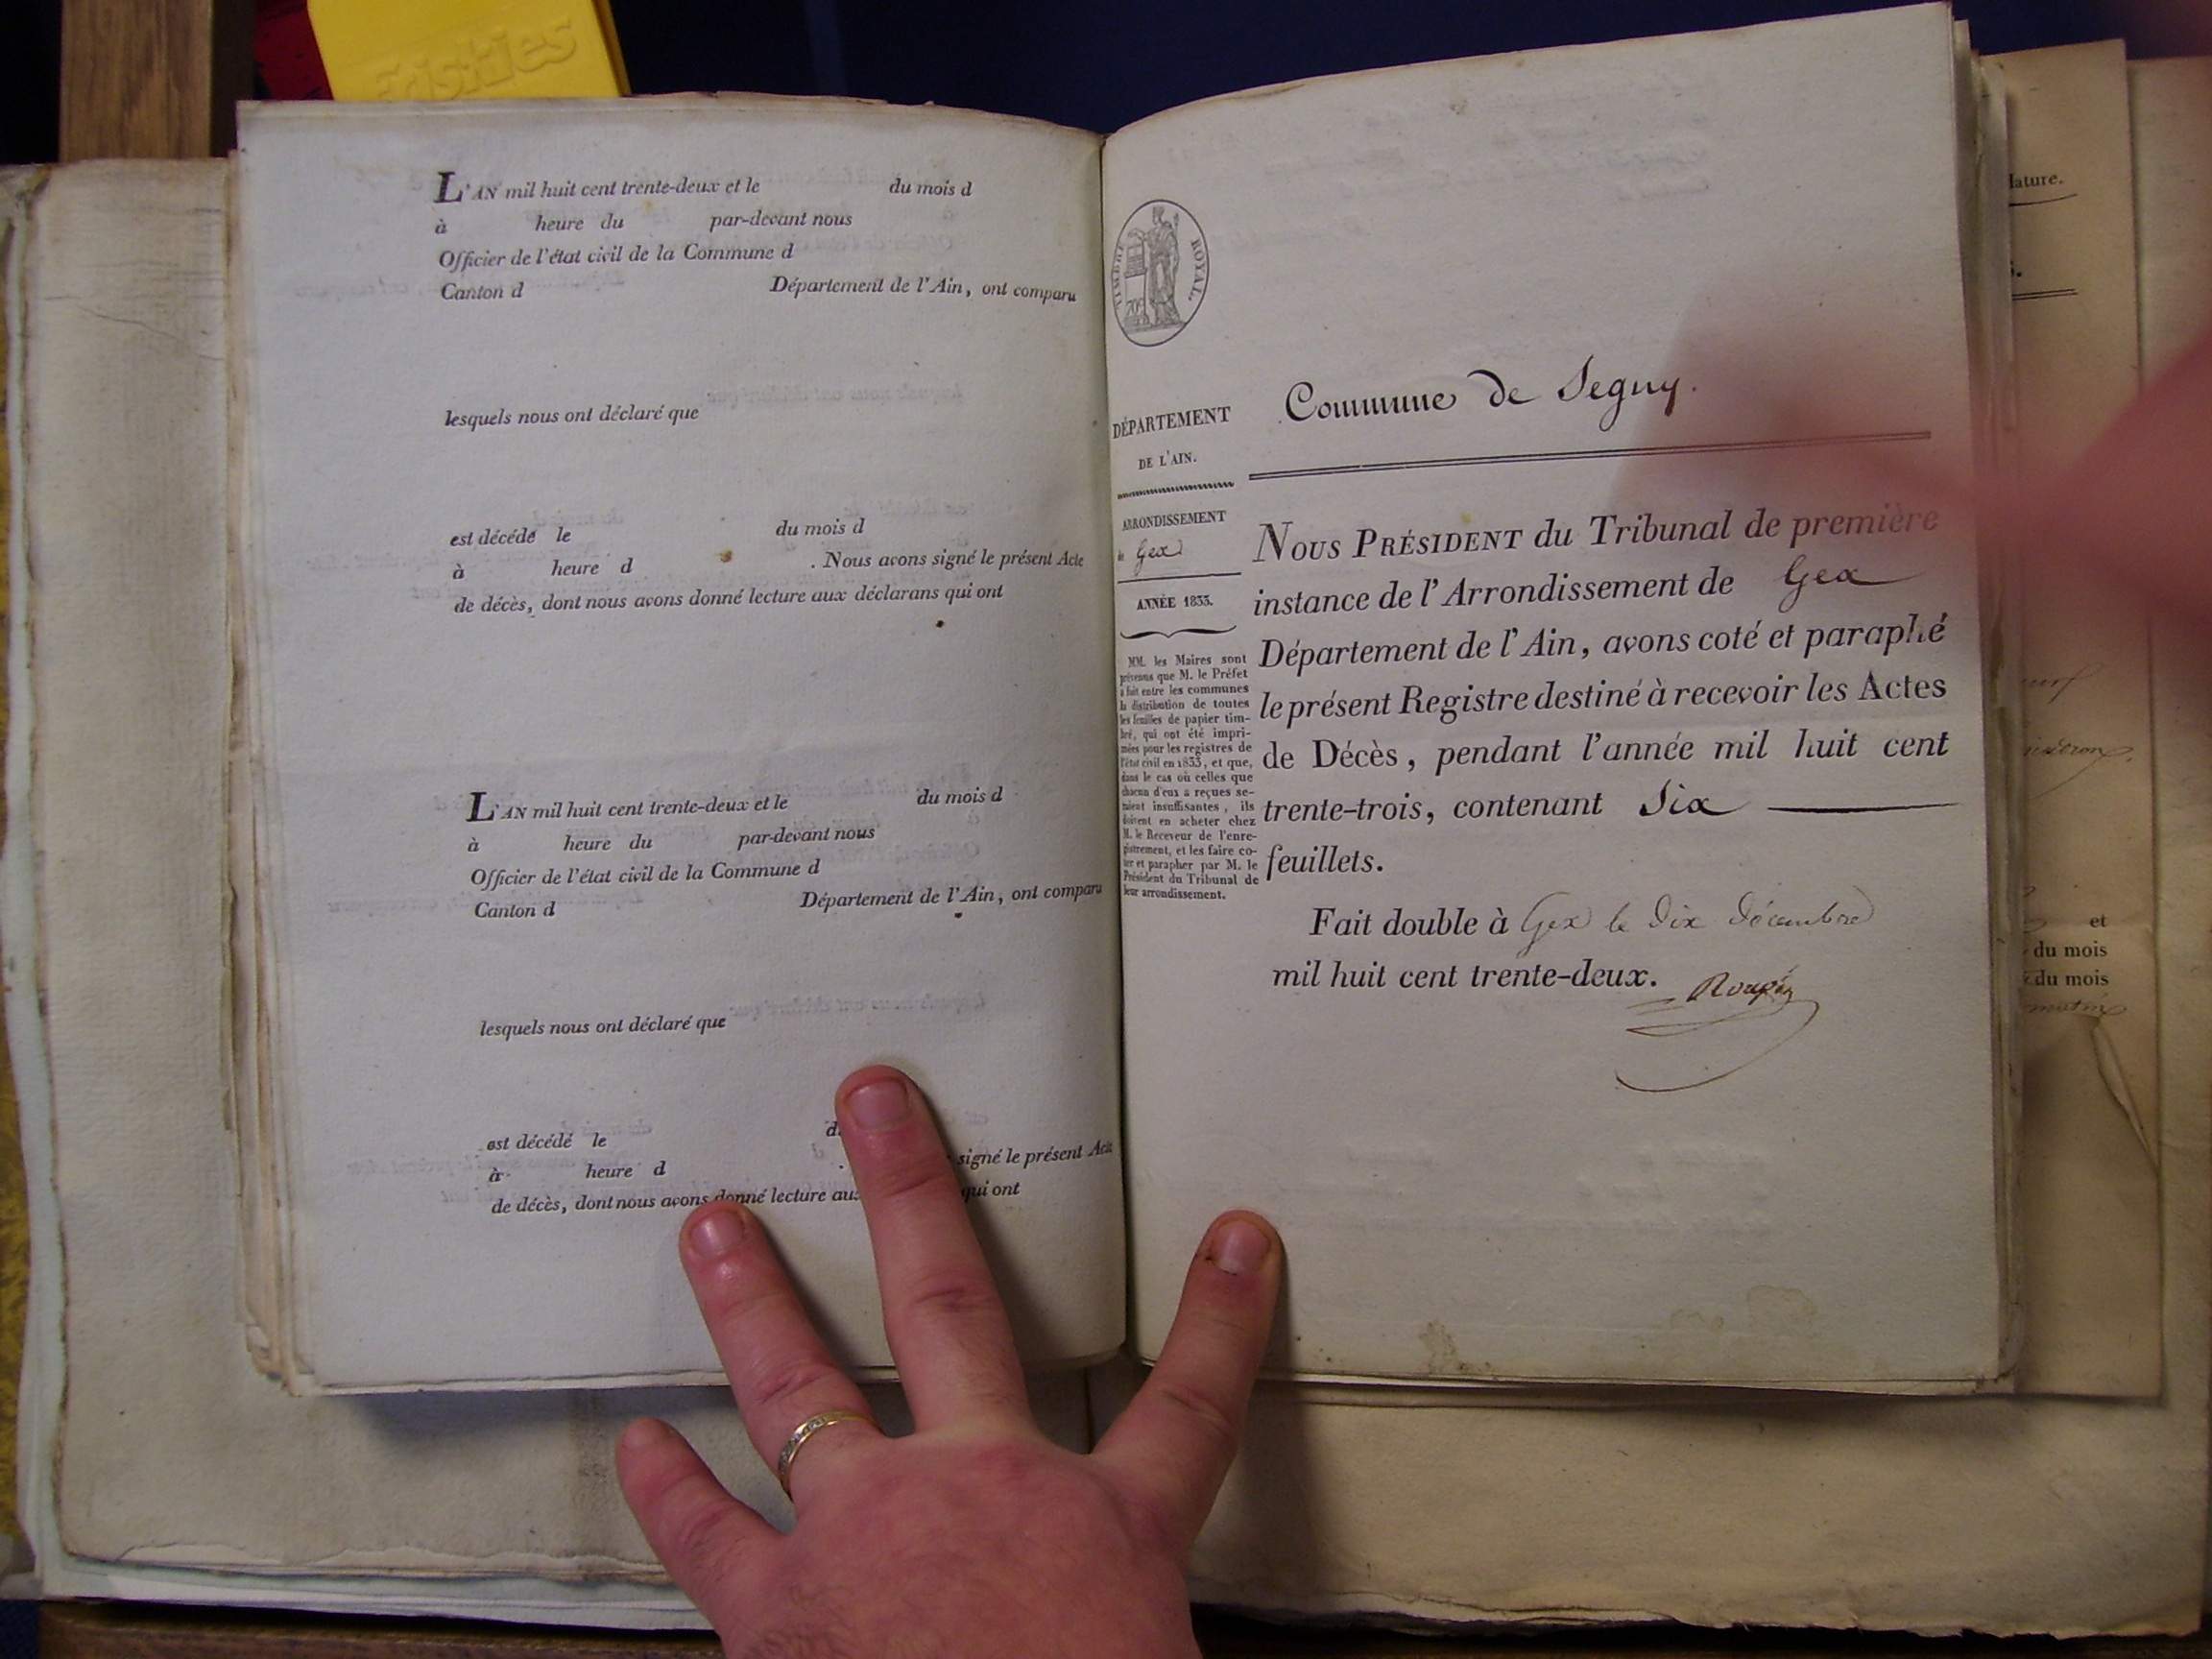 Friskies
L'AN mil huit cent trente-deux et le du mois d
à heure du par-devant nous
Officier de l'état civil de la Commune d
Canton d Département de l'Ain, ont comparu
lesquels nous ont déclaré que
est décédé le du mois d
à heure d . Nous avons signé le présent Acte
de décès, dont nous avons donné lecture aux déclarans qui ont
L'AN mil huit cent trente-deux et le du mois d
à heure du par-devant nous
Officier de l'état civil de la Commune d
Canton d Département de l'Ain, ont comparu
lesquels nous ont déclaré que
est décédé le d
à heure d signé le présent Acte
de décès, dont nous avons donné lecture aux qui ont
TIMBRE ROYAL.
DÉPARTEMENT
DE L'AIN.
ARRONDISSEMENT
de Gex
ANNÉE 1833.
MM. les Maires sont
prévenus que M. le Préfet
a fait entre les communes
la distribution de toutes
les feuilles de papier tim-
bré, qui ont été impri-
mées pour les registres de
l'état civil en 1833, et que,
dans le cas où celles que
chacun d'eux a reçues se-
raient insuffisantes, ils
doivent en acheter chez
M. le Receveur de l'enre-
gistrement, et les faire co-
ter et parapher par M. le
Président du Tribunal de
leur arrondissement.
Commune de Segny.
NOUS PRÉSIDENT du Tribunal de première
instance de l'Arrondissement de Gex
Département de l'Ain, avons coté et paraphé
le présent Registre destiné à recevoir les Actes
de Décès, pendant l'année mil huit cent
trente-trois, contenant Six
feuillets.
Fait double à Gex le dix décembre
mil huit cent trente-deux.
lature.
et
du mois
du mois